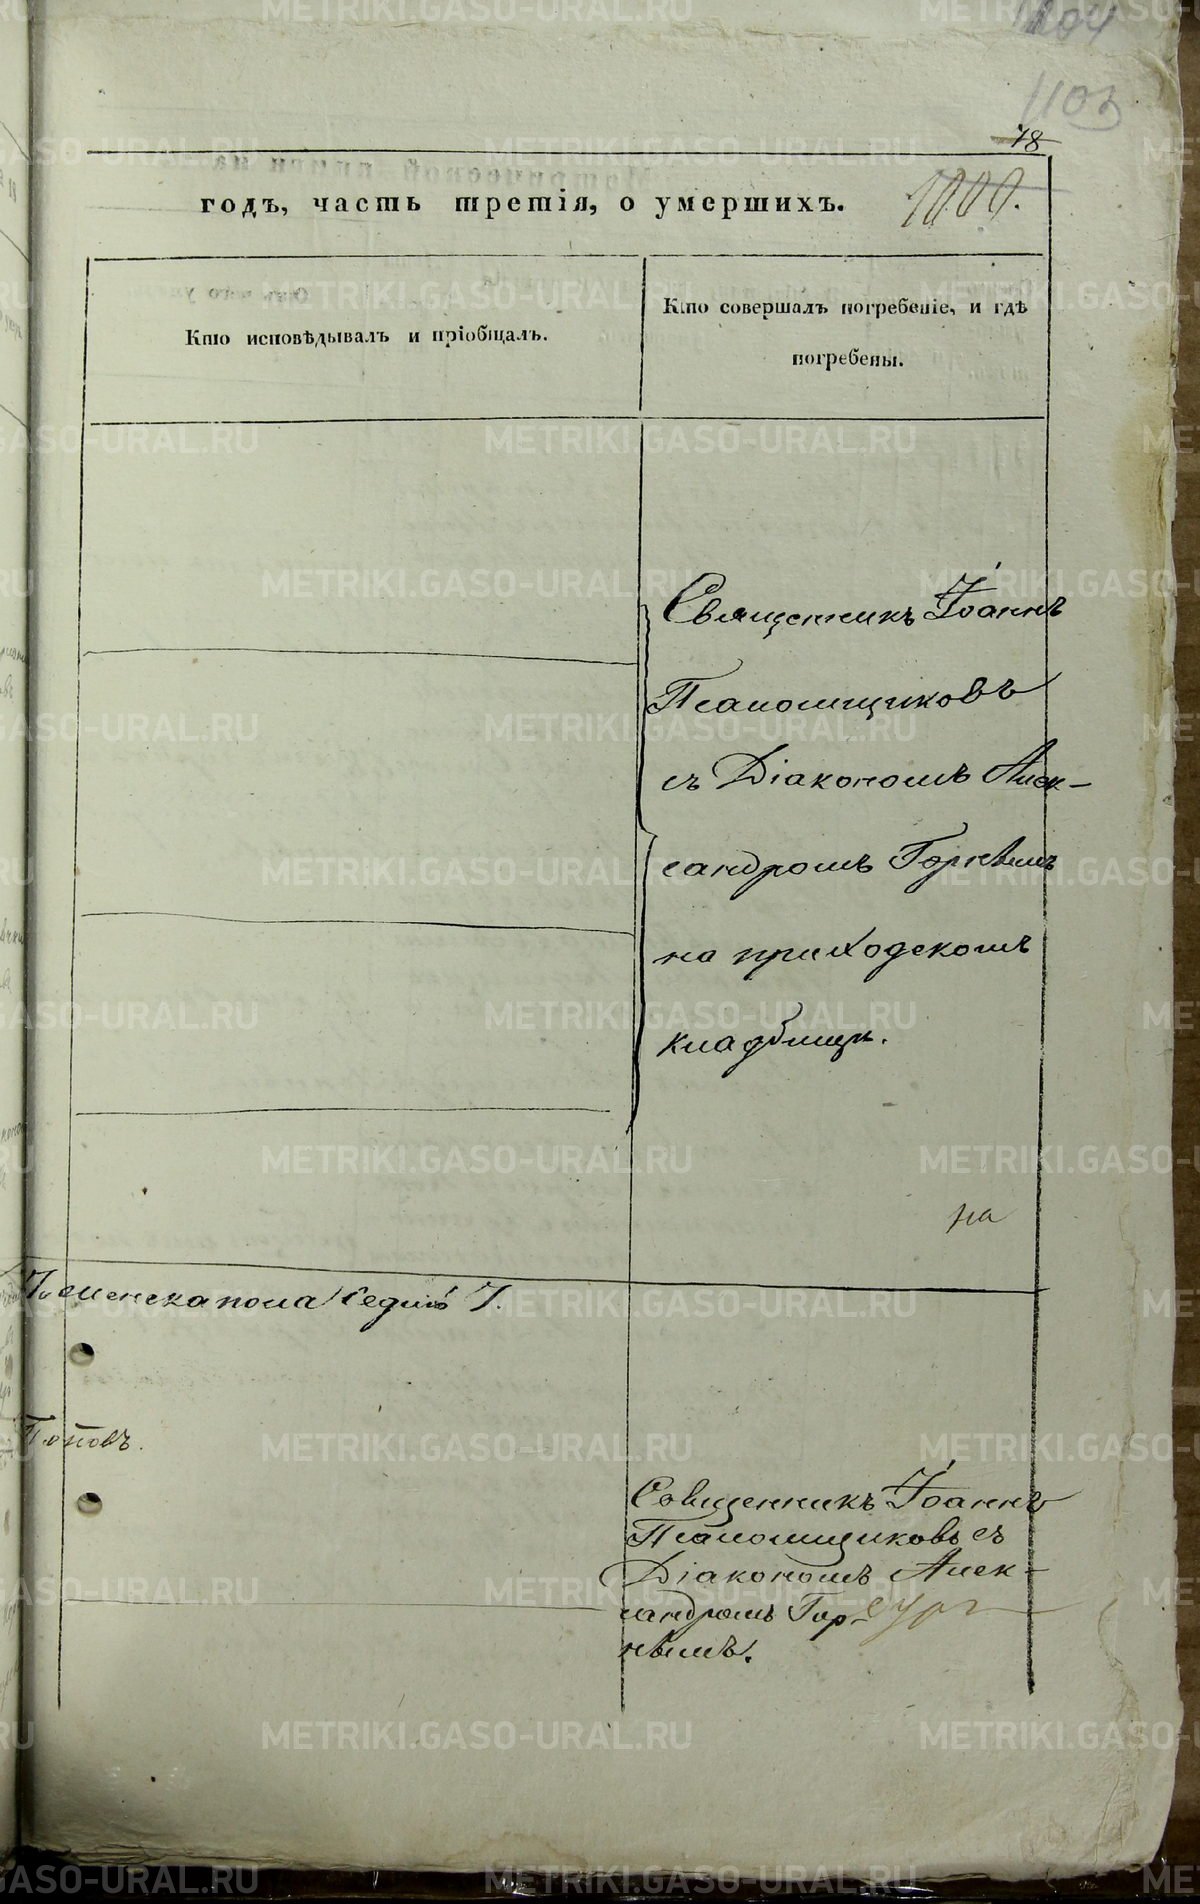 1103
78
годъ, часть третія, о умершихъ.
1000.
Кто исповѣдывалъ и пріобщалъ.
Кто совершалъ погребеніе, и гдѣ
погребены.
Священникъ Іоаннъ
Псаломщиковъ
съ Діакономъ Алек-
сандромъ Горнѣмъ
на приходскомъ
кладбищѣ.
на
7.
Поповъ.
Священникъ Іоаннъ
Псаломщиковъ съ
Діакономъ Алек-
сандромъ Гор-
нѣмъ.
METRIKI.GASO-URAL.RU